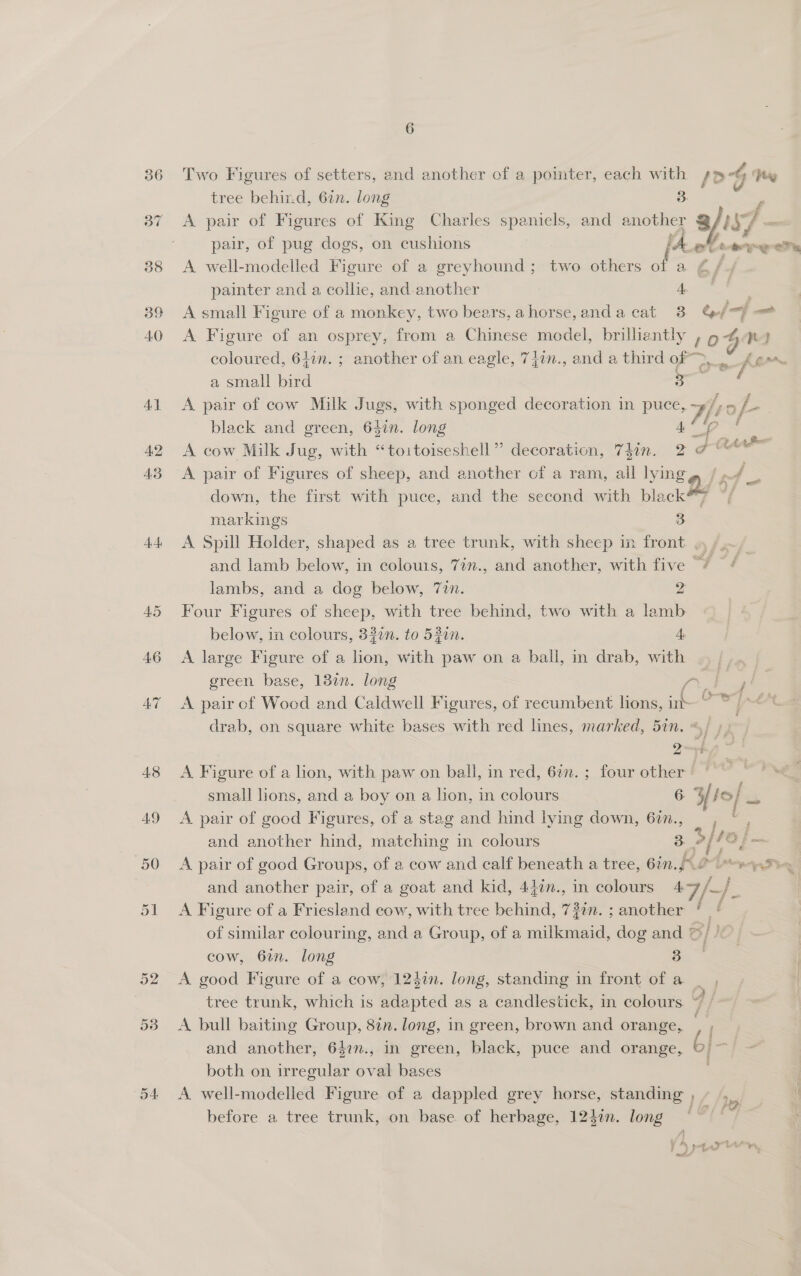 6
36 Two Figures of setters, and another of a pointer, each with
tree behind, 6in. long 3
37 A pair of Figures of King Charles spaniels, and another
pair, of pug dogs, on cushions
38 A well-modelled Figure of a greyhound; two others of a
painter and a collie, and another 4
39 A small Figure of a monkey, two bears, a horse, and a cat 3
40 A Figure of an osprey, from a Chinese model, brilliantly
coloured, 6½in.; another of an eagle, 7½in., and a third of
a small bird 3
41 A pair of cow Milk Jugs, with sponged decoration in puce,
black and green, 6½in. long 4
42 A cow Milk Jug, with “tortoiseshell” decoration, 7½in. 2
43 A pair of Figures of sheep, and another of a ram, all lying
down, the first with puce, and the second with black
markings 3
44 A Spill Holder, shaped as a tree trunk, with sheep in front
and lamb below, in colours, 7in., and another, with five
lambs, and a dog below, 7in. 2
45 Four Figures of sheep, with tree behind, two with a lamb
below, in colours, 3¾in. to 5¾in. 4
46 A large Figure of a lion, with paw on a ball, in drab, with
green base, 13in. long
47 A pair of Wood and Caldwell Figures, of recumbent lions, in
drab, on square white bases with red lines, marked, 5in.
2
48 A Figure of a lion, with paw on ball, in red, 6in.; four other
small lions, and a boy on a lion, in colours 6
49 A pair of good Figures, of a stag and hind lying down, 6in.,
and another hind, matching in colours 3
50 A pair of good Groups, of a cow and calf beneath a tree, 6in.
and another pair, of a goat and kid, 4½in., in colours 4
51 A Figure of a Friesland cow, with tree behind, 7¾in.; another
of similar colouring, and a Group, of a milkmaid, dog and
cow, 6in. long 3
52 A good Figure of a cow, 12½in. long, standing in front of a
tree trunk, which is adapted as a candlestick, in colours
53 A bull baiting Group, 8in. long, in green, brown and orange,
and another, 6½in., in green, black, puce and orange,
both on irregular oval bases
54 A well-modelled Figure of a dappled grey horse, standing
before a tree trunk, on base of herbage, 12½in. long